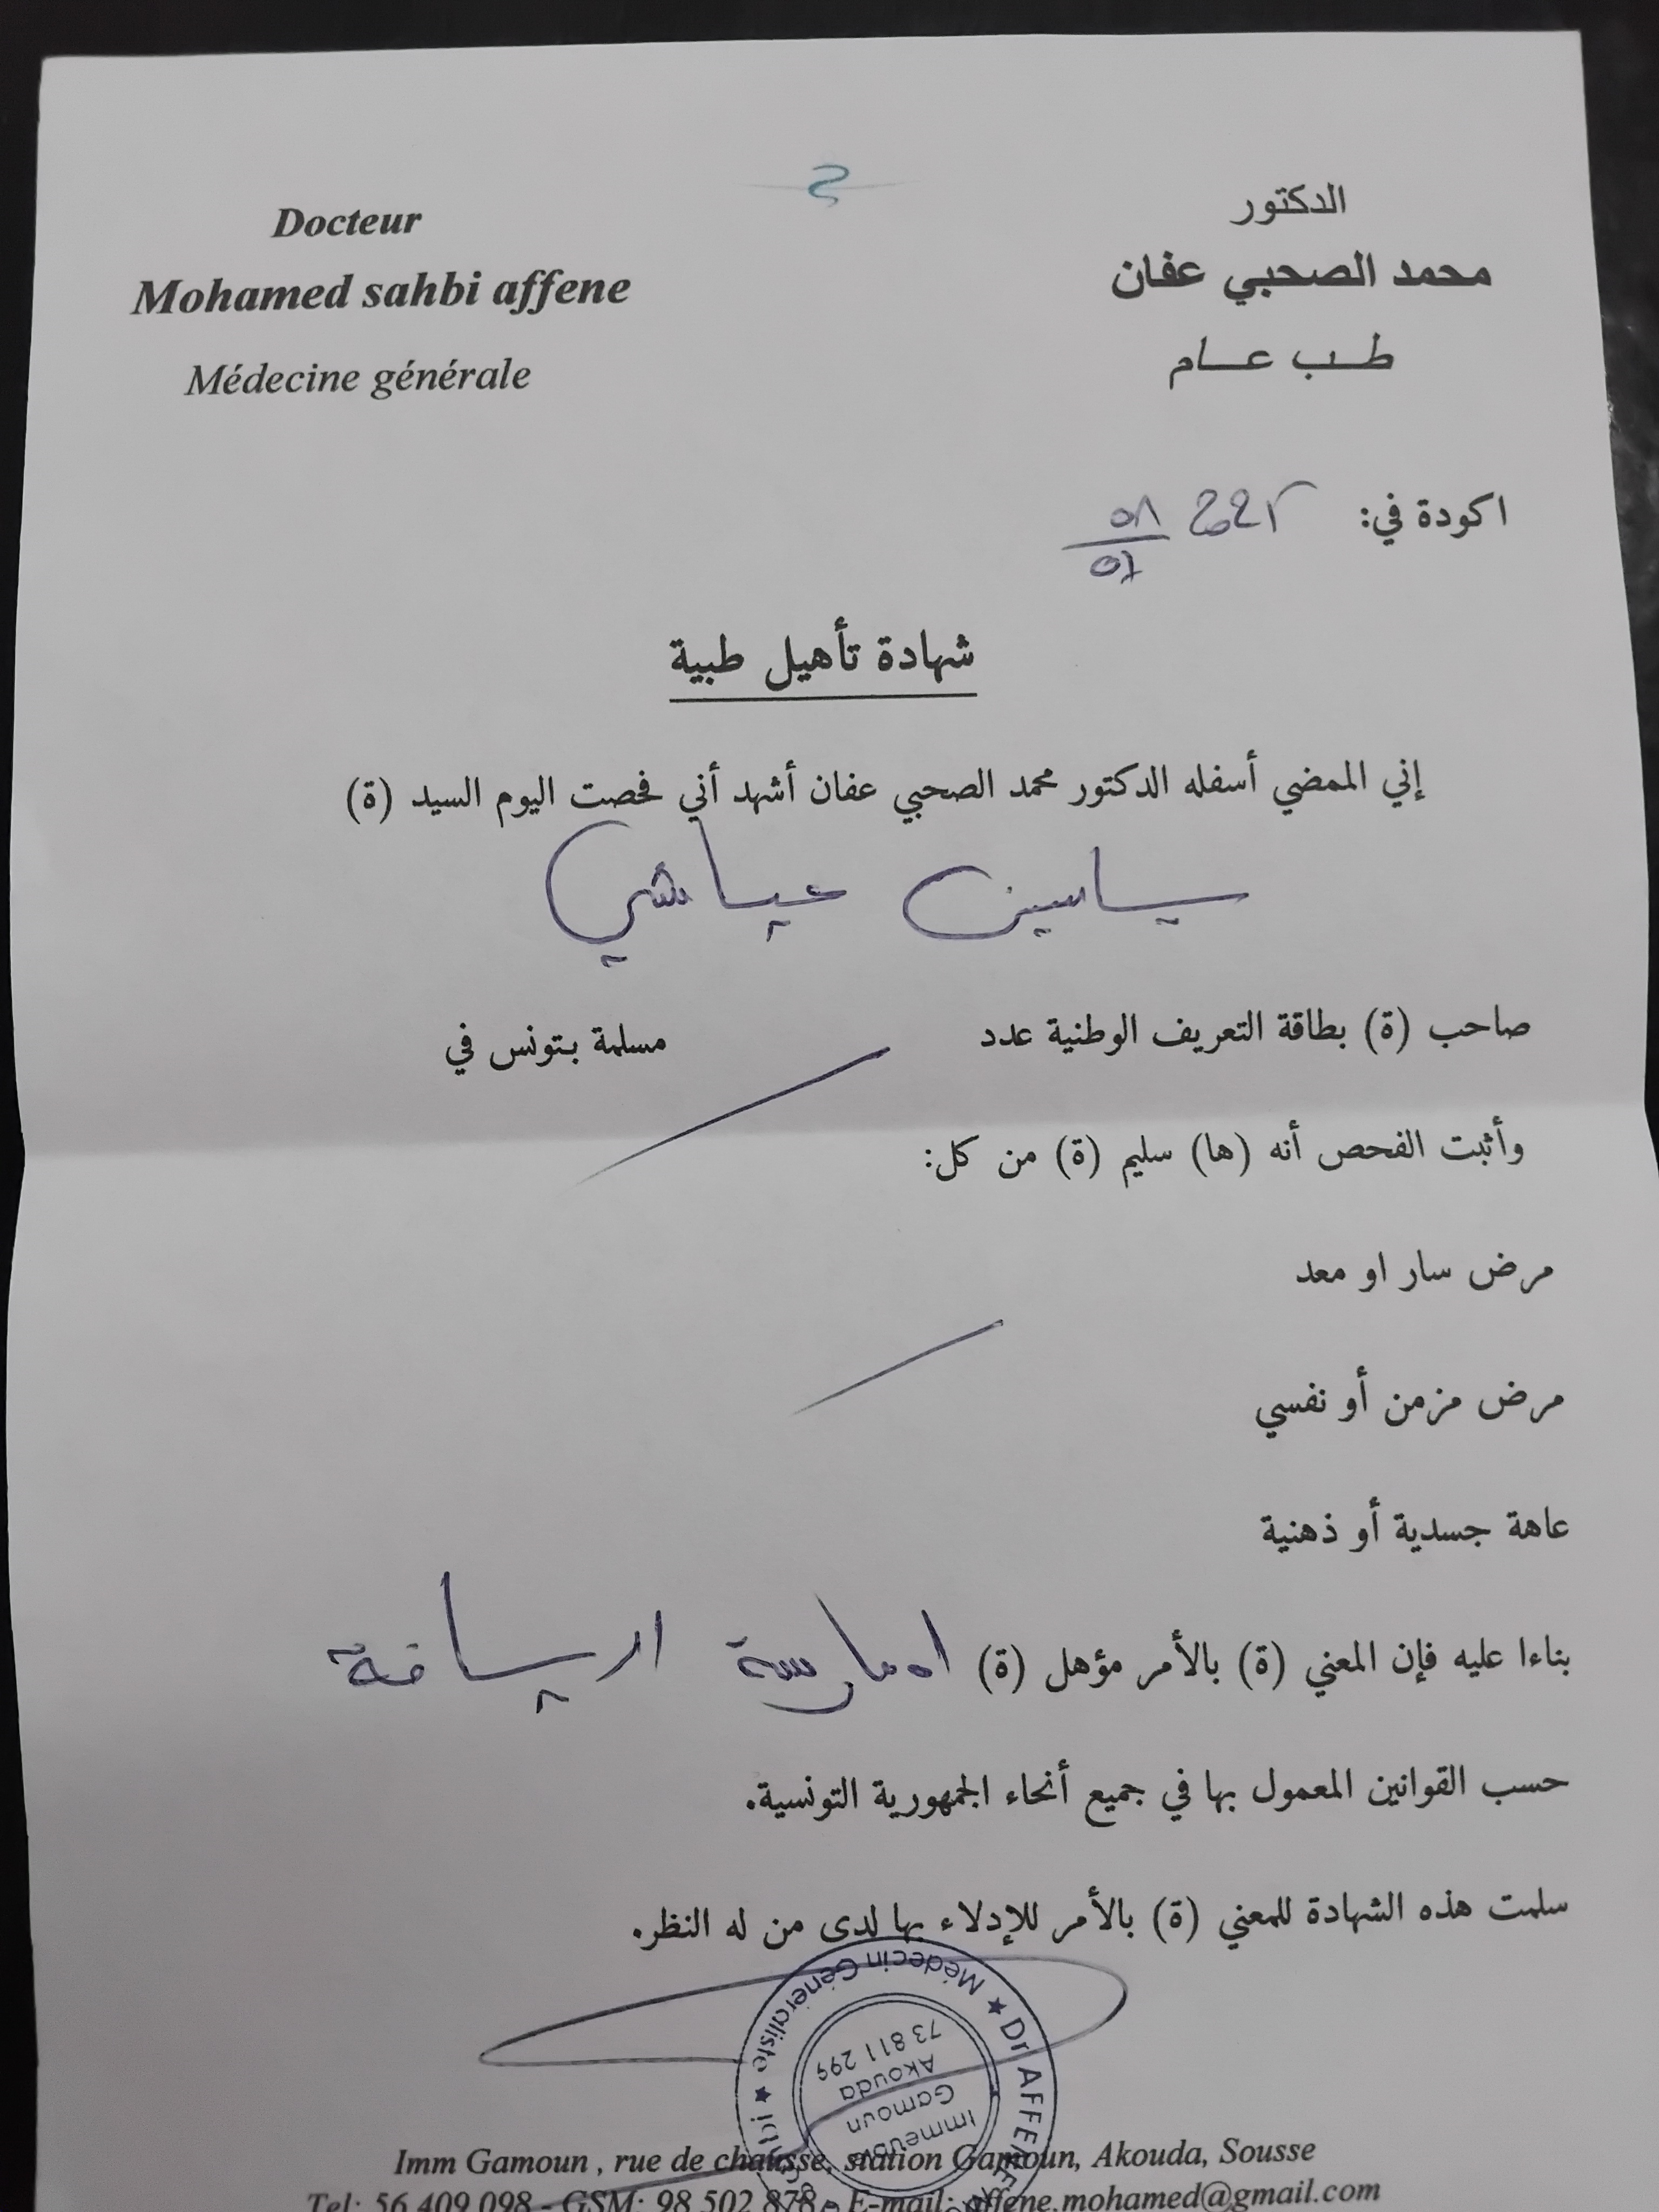 Docteur
Mohamed sahbi affene
Médecine générale
الدكتور
محمد الصحبي عفان
طب عام
اكودة في:
شهادة تأهيل طبية
إني الممضي أسفله الدكتور محمد الصحبي عفان أشهد أني فحصت اليوم السيد (ة)
ياسين عياشي
صاحب (ة) بطاقة التعريف الوطنية عدد مسلمة بتونس في
وأثبت الفحص أنه (ها) سليم (ة) من كل:
مرض سار او معد
مرض مزمن أو نفسي
عاهة جسدية أو ذهنية
بناءا عليه فإن المعني (ة) بالأمر مؤهل (ة)
حسب القوانين المعمول بها في جميع أنحاء الجمهورية التونسية.
سلمت هذه الشهادة للمعني (ة) بالأمر للإدلاء بها لدى من له النظر.
★ Dr AFFENE
Médecin Généraliste ★
Immeuble
Gamoun
Akouda
73 811 299
Imm Gamoun , rue de chausse, station Gamoun, Akouda, Sousse
Tel: 56 409 098 - GSM: 98 502 878 - E-mail: affene.mohamed@gmail.com